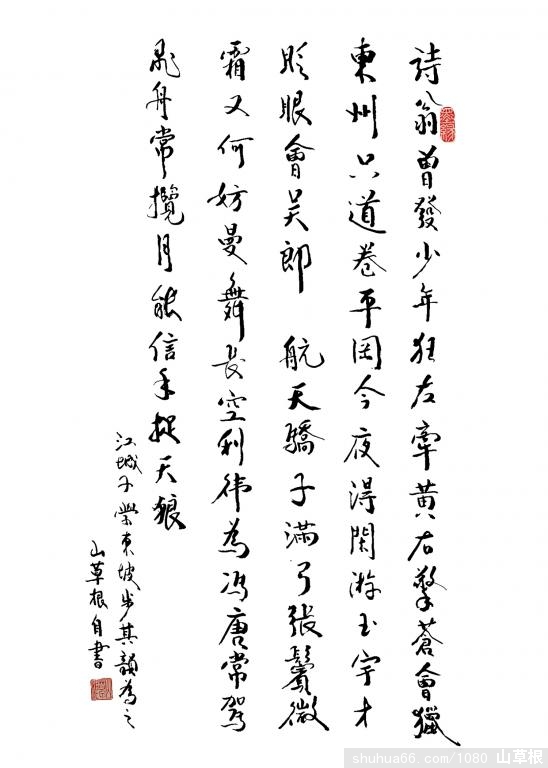 詩翁曾發少年狂左牽黃右擎蒼會獵
東州只道卷平岡今夜得閑游玉宇才
眨眼會吳郎 航天驕子滿弓張鬢微
霜又何妨曼舞長空利偉為馮唐常駕
飛舟常攬月能信手捉天狼
江城子學東坡步其韻為之
山草根自書
shuhua66.com/1080 山草根